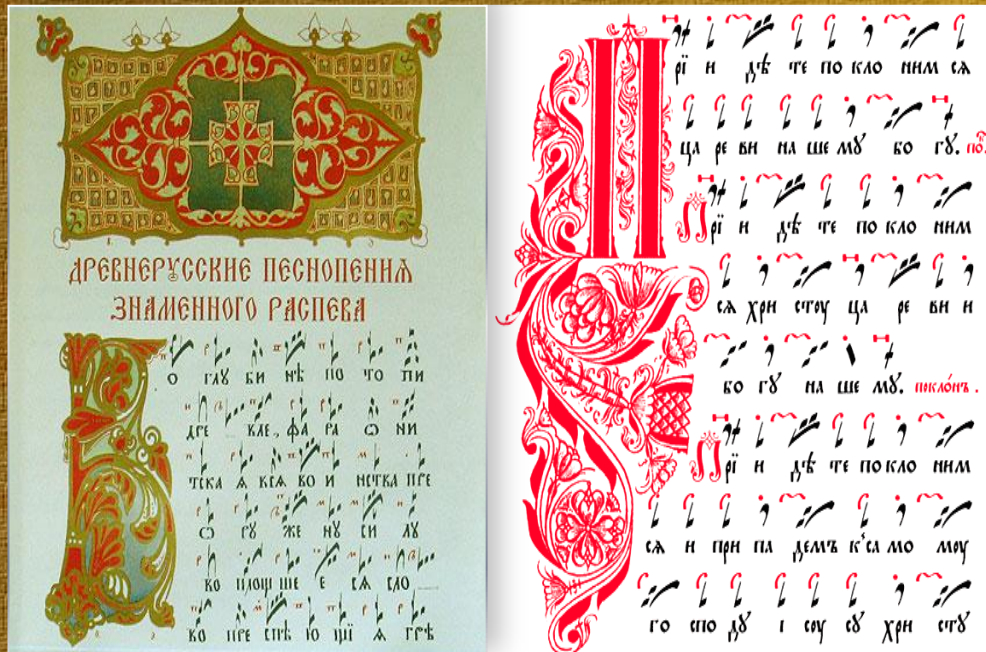 ДРЕВНЕРУССКИЕ ПЕСНОПЕНИЯ
ЗНАМЕННОГО РАСПЕВА
О ГЛꙊ БИ НѢ ПО ТО ПИ
ДРЕ КЛЕ, ФА РА Ѡ НИ
ТСКА Ѧ ВСѦ ВО И НСТВА ПРЕ
Ѡ РꙊ ЖЕ НꙊ СИ ЛꙊ
ВО ПЛОЩ ШЕ Е СѦ СЛО
ВО ПРЕ СПѢ Ю ЩІ Ѧ ГРѢ
П рї и дѣ те по кло ним сѧ
ца ре ви на ше мꙋ бо гꙋ. по.
П рї и дѣ те по кло ним
сѧ хри стоу ца ре ви и
бо гꙋ на ше мꙋ. покло́нъ.
П рї и дѣ те по кло ним
сѧ и при па демъ к̾ са мо моу
го спо дꙋ і соу сꙋ хри стꙋ